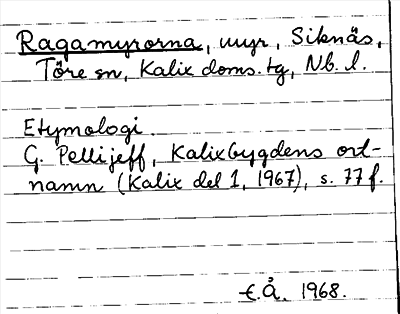 Ragamyrorna, myr, Siknäs,
Töre sn, Kalix doms. tg, Nb. l.
Etymologi
G. Pellijeff, Kalixbygdens ort-
namn (Kalix del 1, 1967), s. 77 f.
E.Å. 1968.